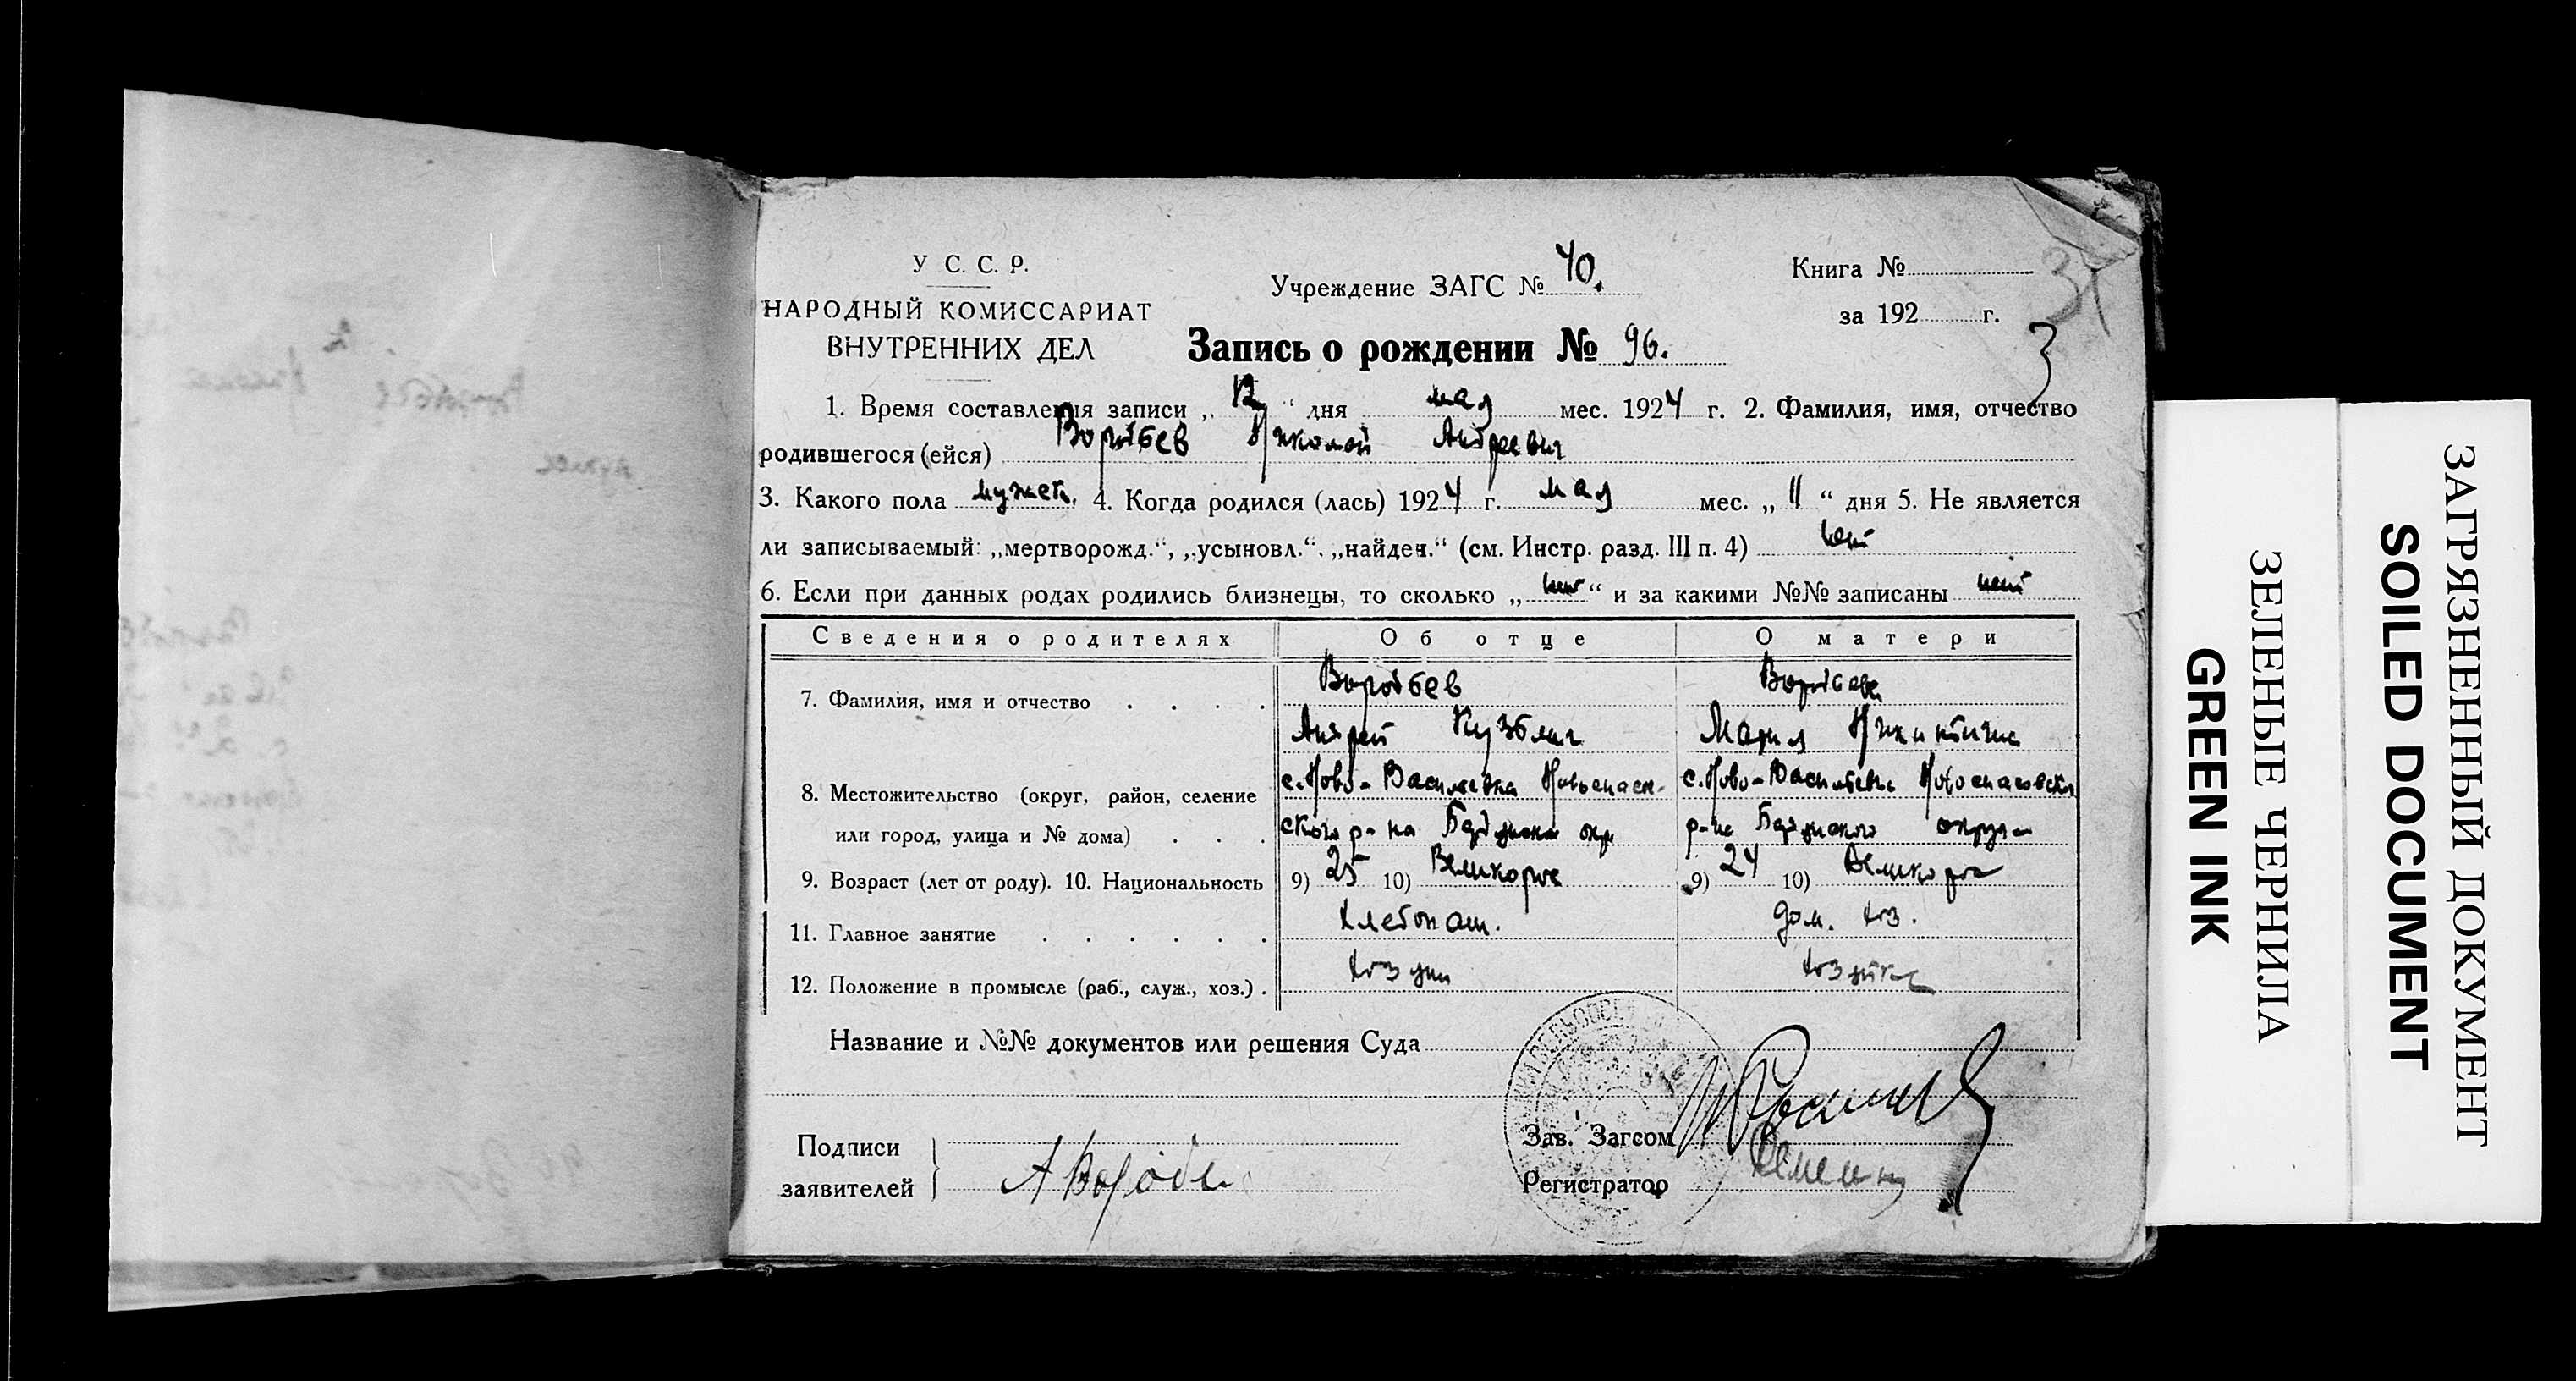 У С. С. Р.
НАРОДНЫЙ КОМИССАРИАТ
ВНУТРЕННИХ ДЕЛ
Учреждение ЗАГС № 40.
Книга №
за 192 г.
3
Запись о рождении № 96.
1. Время составления записи „12“ дня мая мес. 1924 г. 2. Фамилия, имя, отчество
родившегося (ейся) Воробьев Николай Андреевич
3. Какого пола мужск. 4. Когда родился (лась) 1924 г. мая мес. „11“ дня 5. Не является
ли записываемый: „мертворожд.“, „усыновл.“, „найден.“ (см. Инстр. разд. III п. 4) нет
6. Если при данных родах родились близнецы, то сколько „нет“ и за какими №№ записаны нет
Сведения о родителях Об отце О матери
7. Фамилия, имя и отчество Воробьев Воробьева
Андрей Кузьмич Мария Никитична
8. Местожительство (округ, район, селение с. Ново-Васильевка с. Ново-Васильевка
или город, улица и № дома) ского р-на р-на округа
9. Возраст (лет от роду). 10. Национальность 9) 25 10) Великорос 9) 24 10) Великорос
11. Главное занятие хлебопаш. дом. хоз.
12. Положение в промысле (раб., служ., хоз.) хозяин хозяйка
Название и №№ документов или решения Суда
Подписи
заявителей
А Воробьев
Зав. Загсом
Регистратор
ЗЕЛЕНЫЕ ЧЕРНИЛА
GREEN INK
ЗАГРЯЗНЕННЫЙ ДОКУМЕНТ
SOILED DOCUMENT